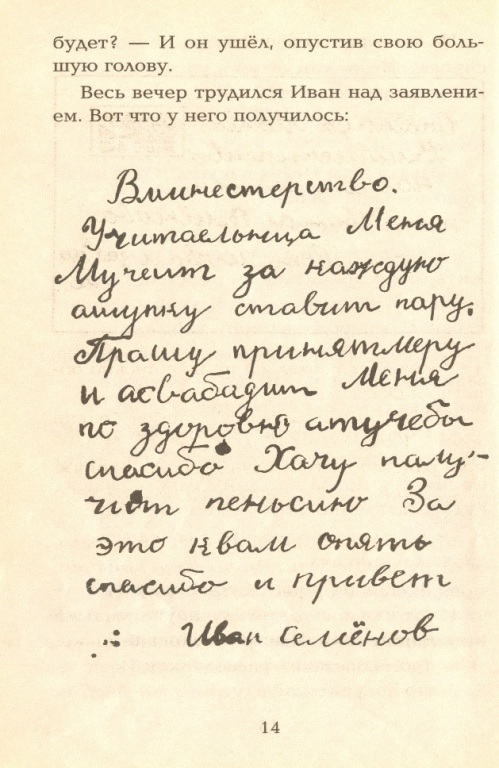 будет? — И он ушёл, опустив свою боль-
шую голову.
Весь вечер трудился Иван над заявлени-
ем. Вот что у него получилось:
Вминестерство.
Учитаельница Меня
Мучеит за каждую
ашупку ставит пару.
Прашу принятмеру
и асвабадит Меня
по здоровию атучебы
спасибо Хачу палу-
чит пеньсию За
это квам опять
спасибо и привет
Иван Семёнов
14